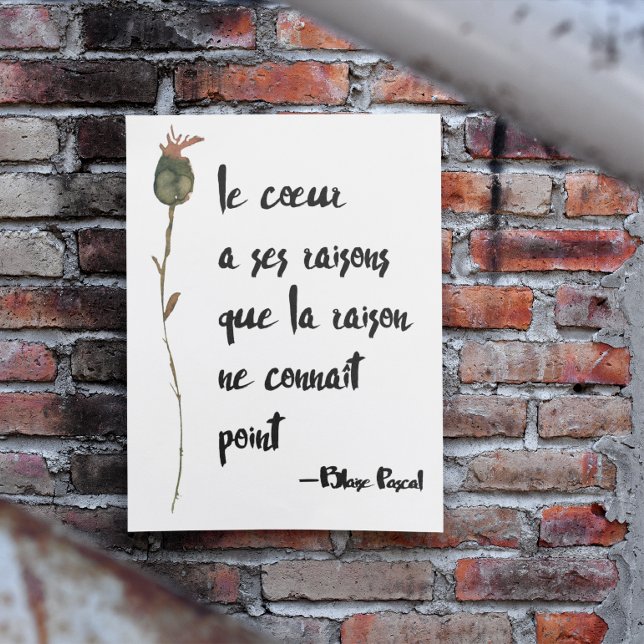 le cœur
a ses raisons
que la raison
ne connaît
point
—Blaise Pascal